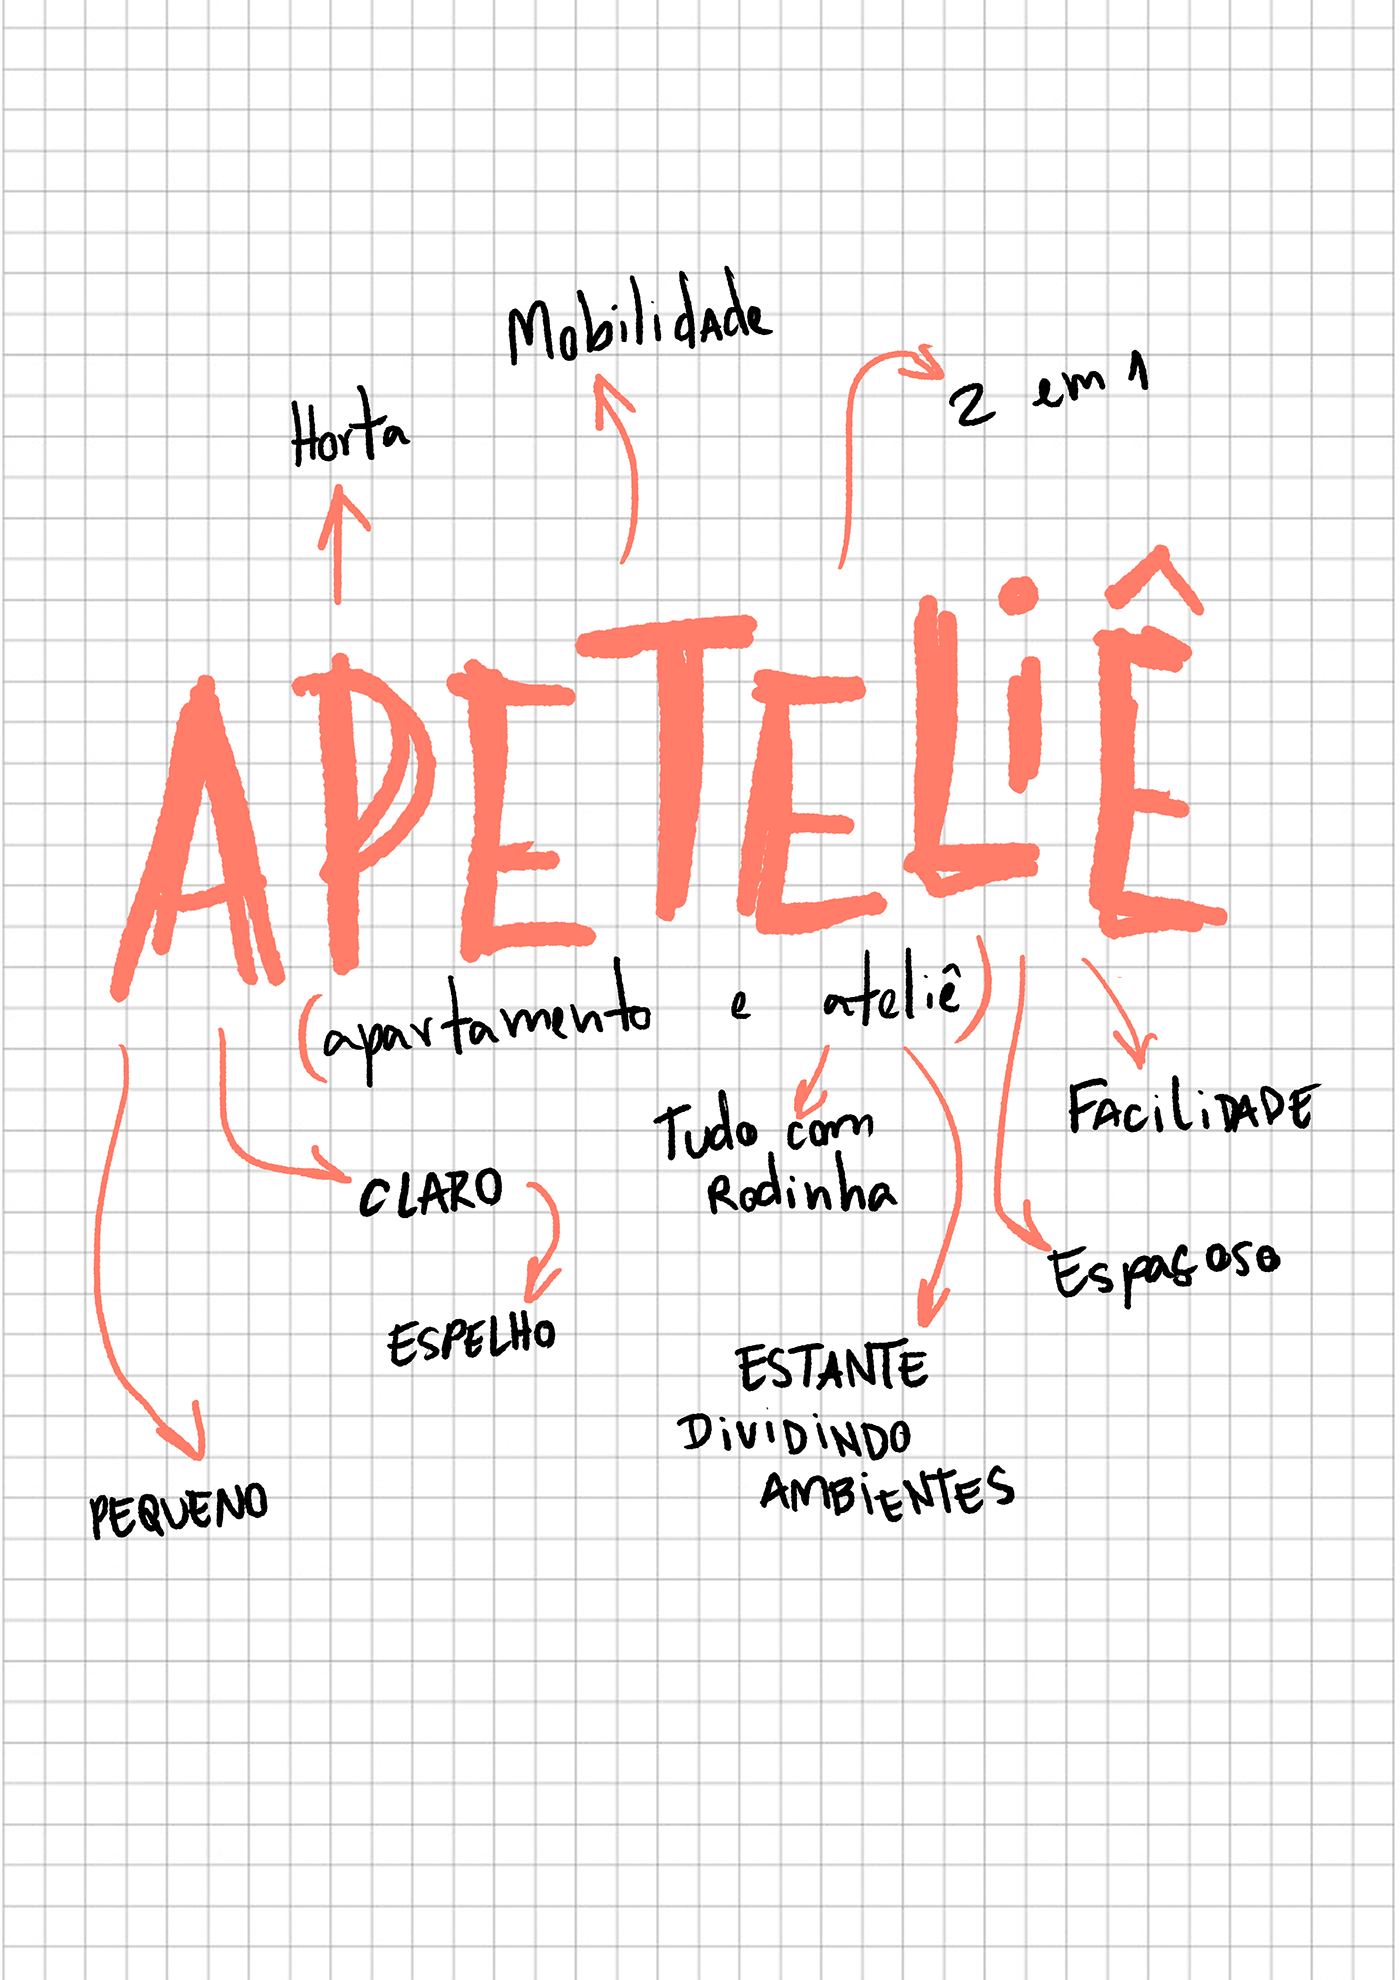 Mobilidade
2 em 1
Horta
APETELiÊ
(apartamento e ateliê)
Tudo com
Rodinha
FACiLiDADE
CLARO
Espaçoso
ESPELHO
ESTANTE
DiViDiNDO
AMBiENTES
PEQUENO